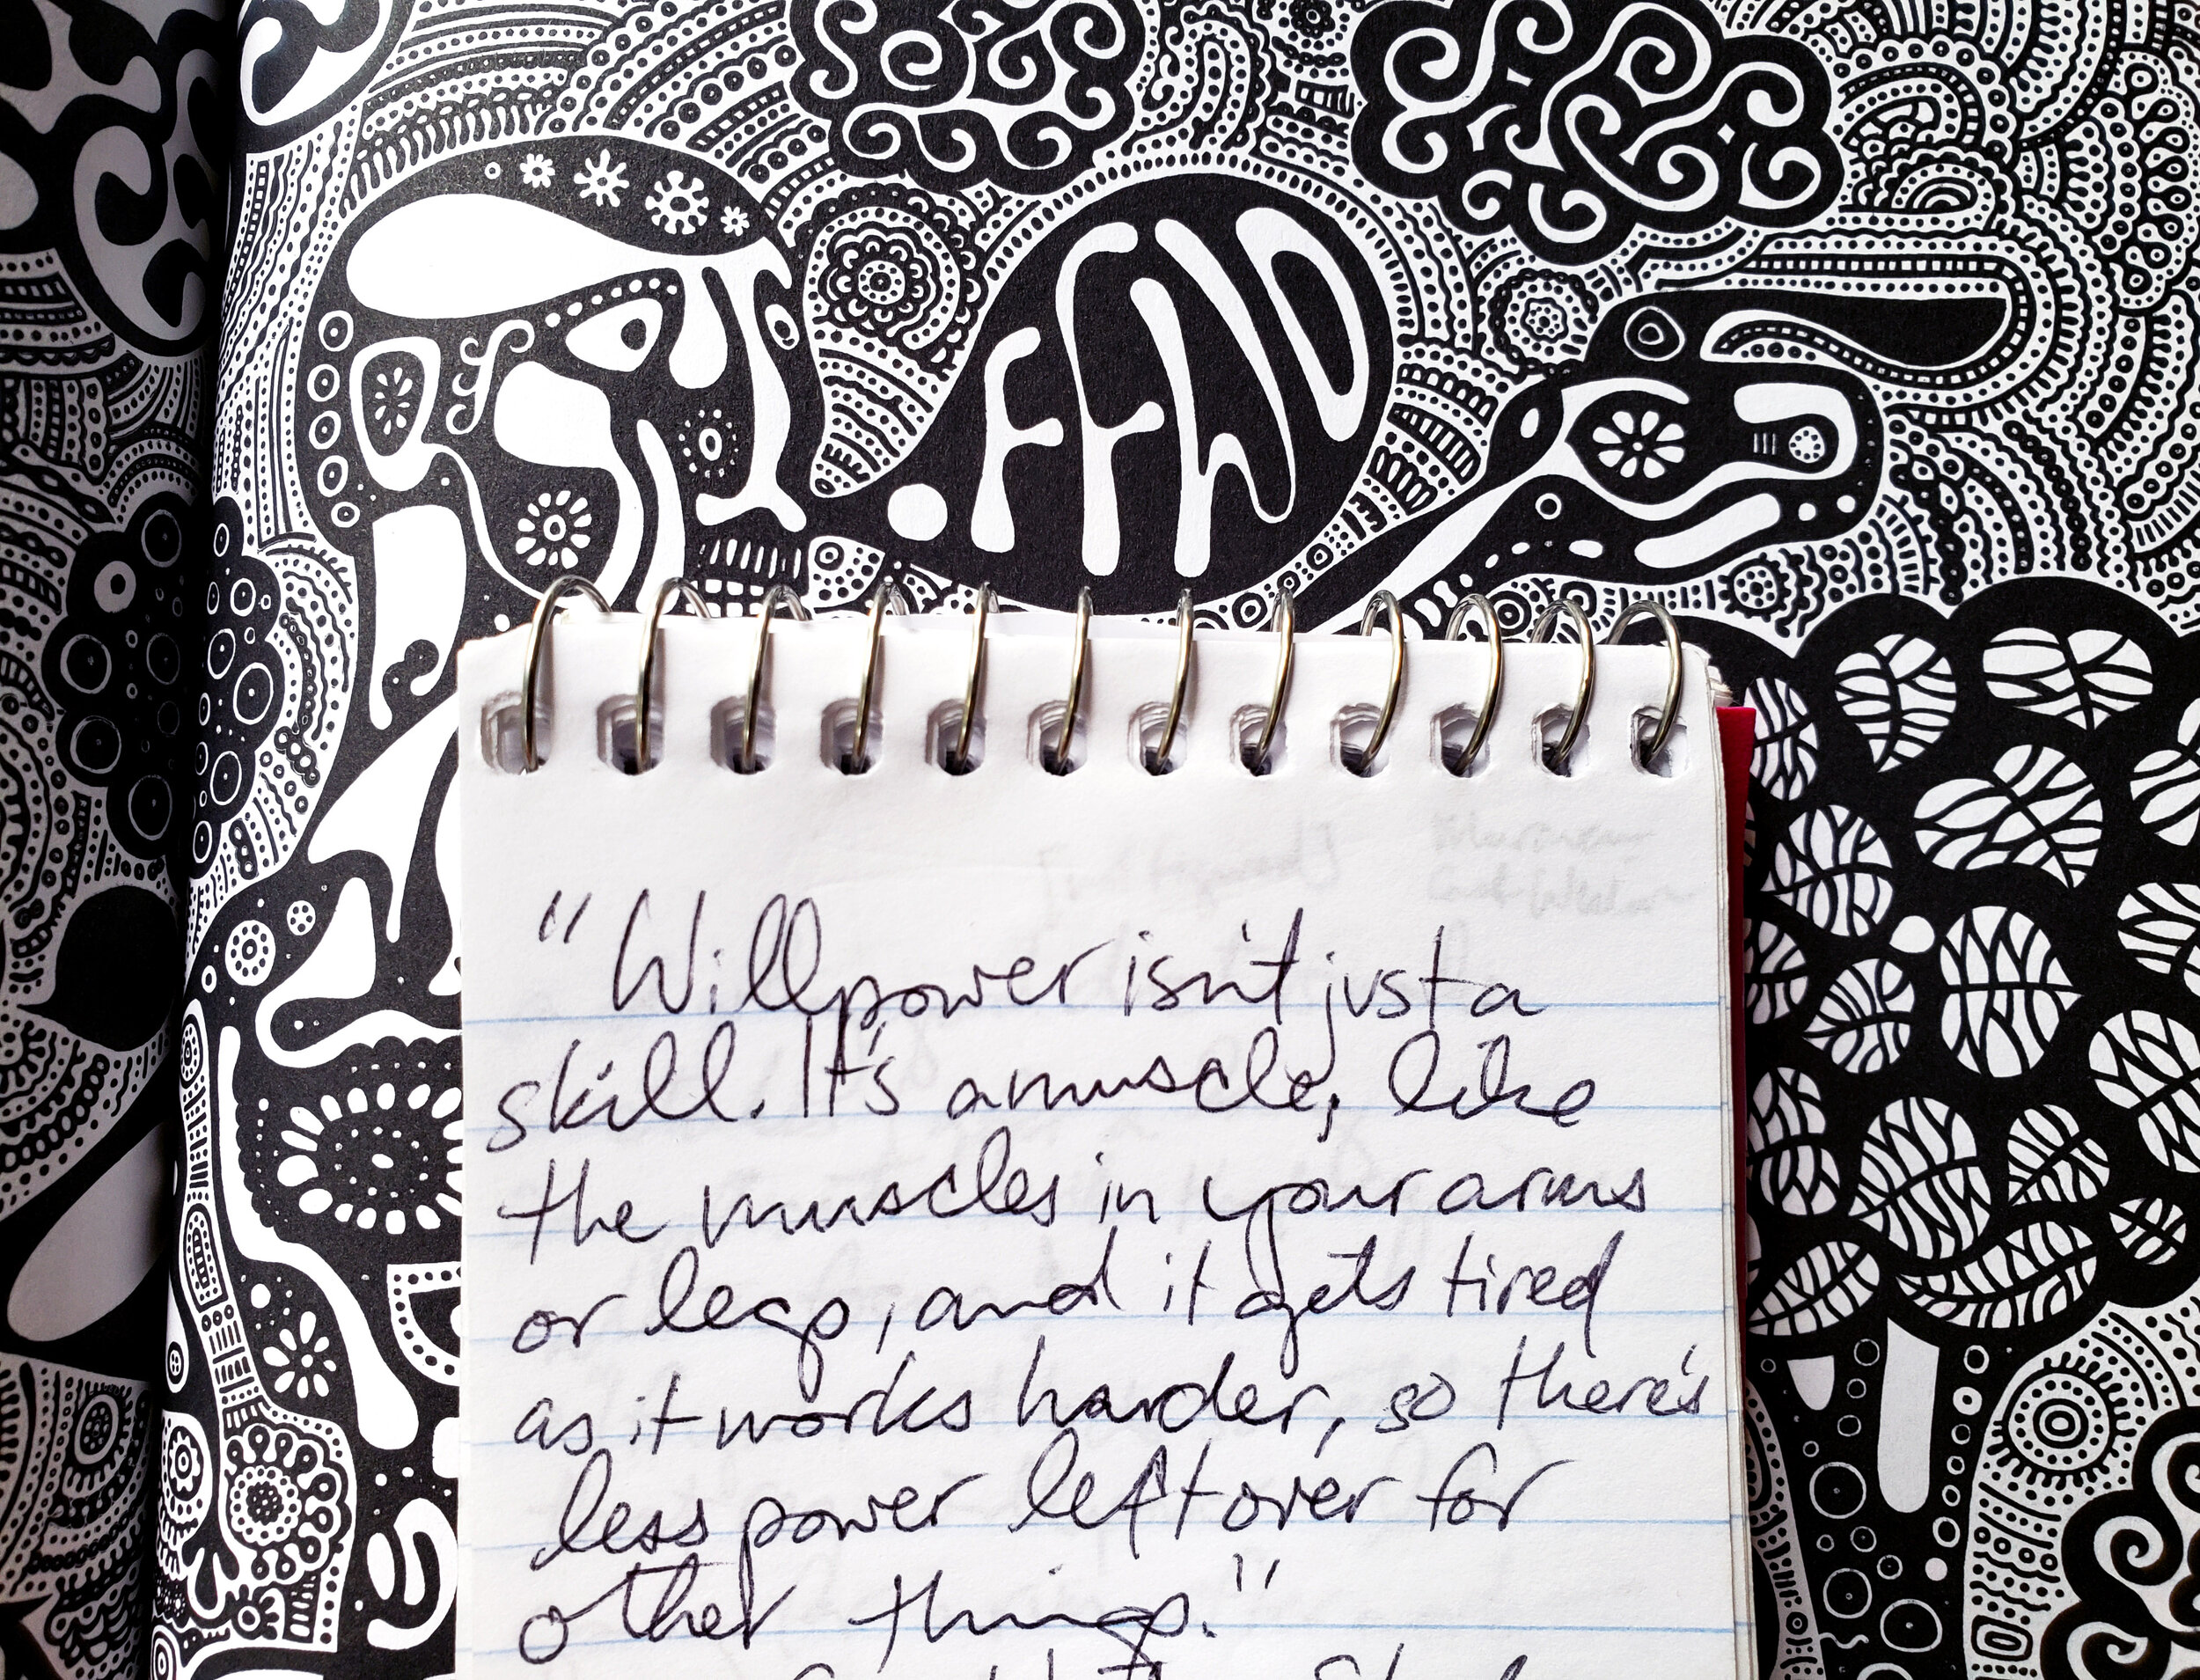 FFWD
"Willpower isn't just a
skill. It's a muscle, like
the muscles in your arms
or legs, and it gets tired
as it works harder, so there's
less power left over for
other things."